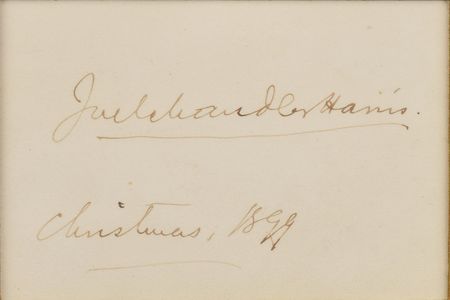 Joel Chandler Harris.
Christmas, 1899